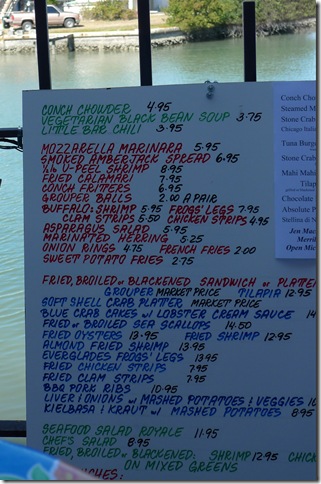 CONCH CHOWDER 4.95
VEGETARIAN BLACK BEAN SOUP 3.75
LITTLE BAR CHILI 3.95
MOZZARELLA MARINARA 5.95
SMOKED AMBERJACK SPREAD 6.95
½ lb U-PEEL SHRIMP 8.95
FRIED CALAMARI 7.95
CONCH FRITTERS 6.95
GROUPER BALLS 2.00 A PAIR
BUFFALO: SHRIMP 5.95 FROGS' LEGS 7.95
CLAM STRIPS 5.50 CHICKEN STRIPS 4.95
ASPARAGUS SALAD 5.95
MARINATED HERRING 5.25
ONION RINGS 4.75 FRENCH FRIES 2.00
SWEET POTATO FRIES 2.75
FRIED, BROILED or BLACKENED SANDWICH or PLATTER
GROUPER MARKET PRICE TILAPIA 12.95
SOFT SHELL CRAB PLATTER MARKET PRICE
BLUE CRAB CAKES w/ LOBSTER CREAM SAUCE 14
FRIED or BROILED SEA SCALLOPS 14.50
FRIED OYSTERS 13.95 FRIED SHRIMP 12.95
ALMOND FRIED SHRIMP 13.95
EVERGLADES FROGS' LEGS 13.95
FRIED CHICKEN STRIPS 7.95
FRIED CLAM STRIPS 7.95
BBQ PORK RIBS 10.95
LIVER & ONIONS w/ MASHED POTATOES & VEGGIES 10
KIELBASA & KRAUT w/ MASHED POTATOES 8.95
SEAFOOD SALAD ROYALE 11.95
CHEF'S SALAD 8.95
FRIED, BROILED or BLACKENED: SHRIMP 12.95 CHICK
ON MIXED GREENS
Conch Chow
Steamed M
Stone Crab
Chicago Italia
Tuna Burg
Stone Crab
Mahi Mahi
Tilap
Chocolate
Absolute P
Stellina di N
Jen Mac
Merrit
Open Mic